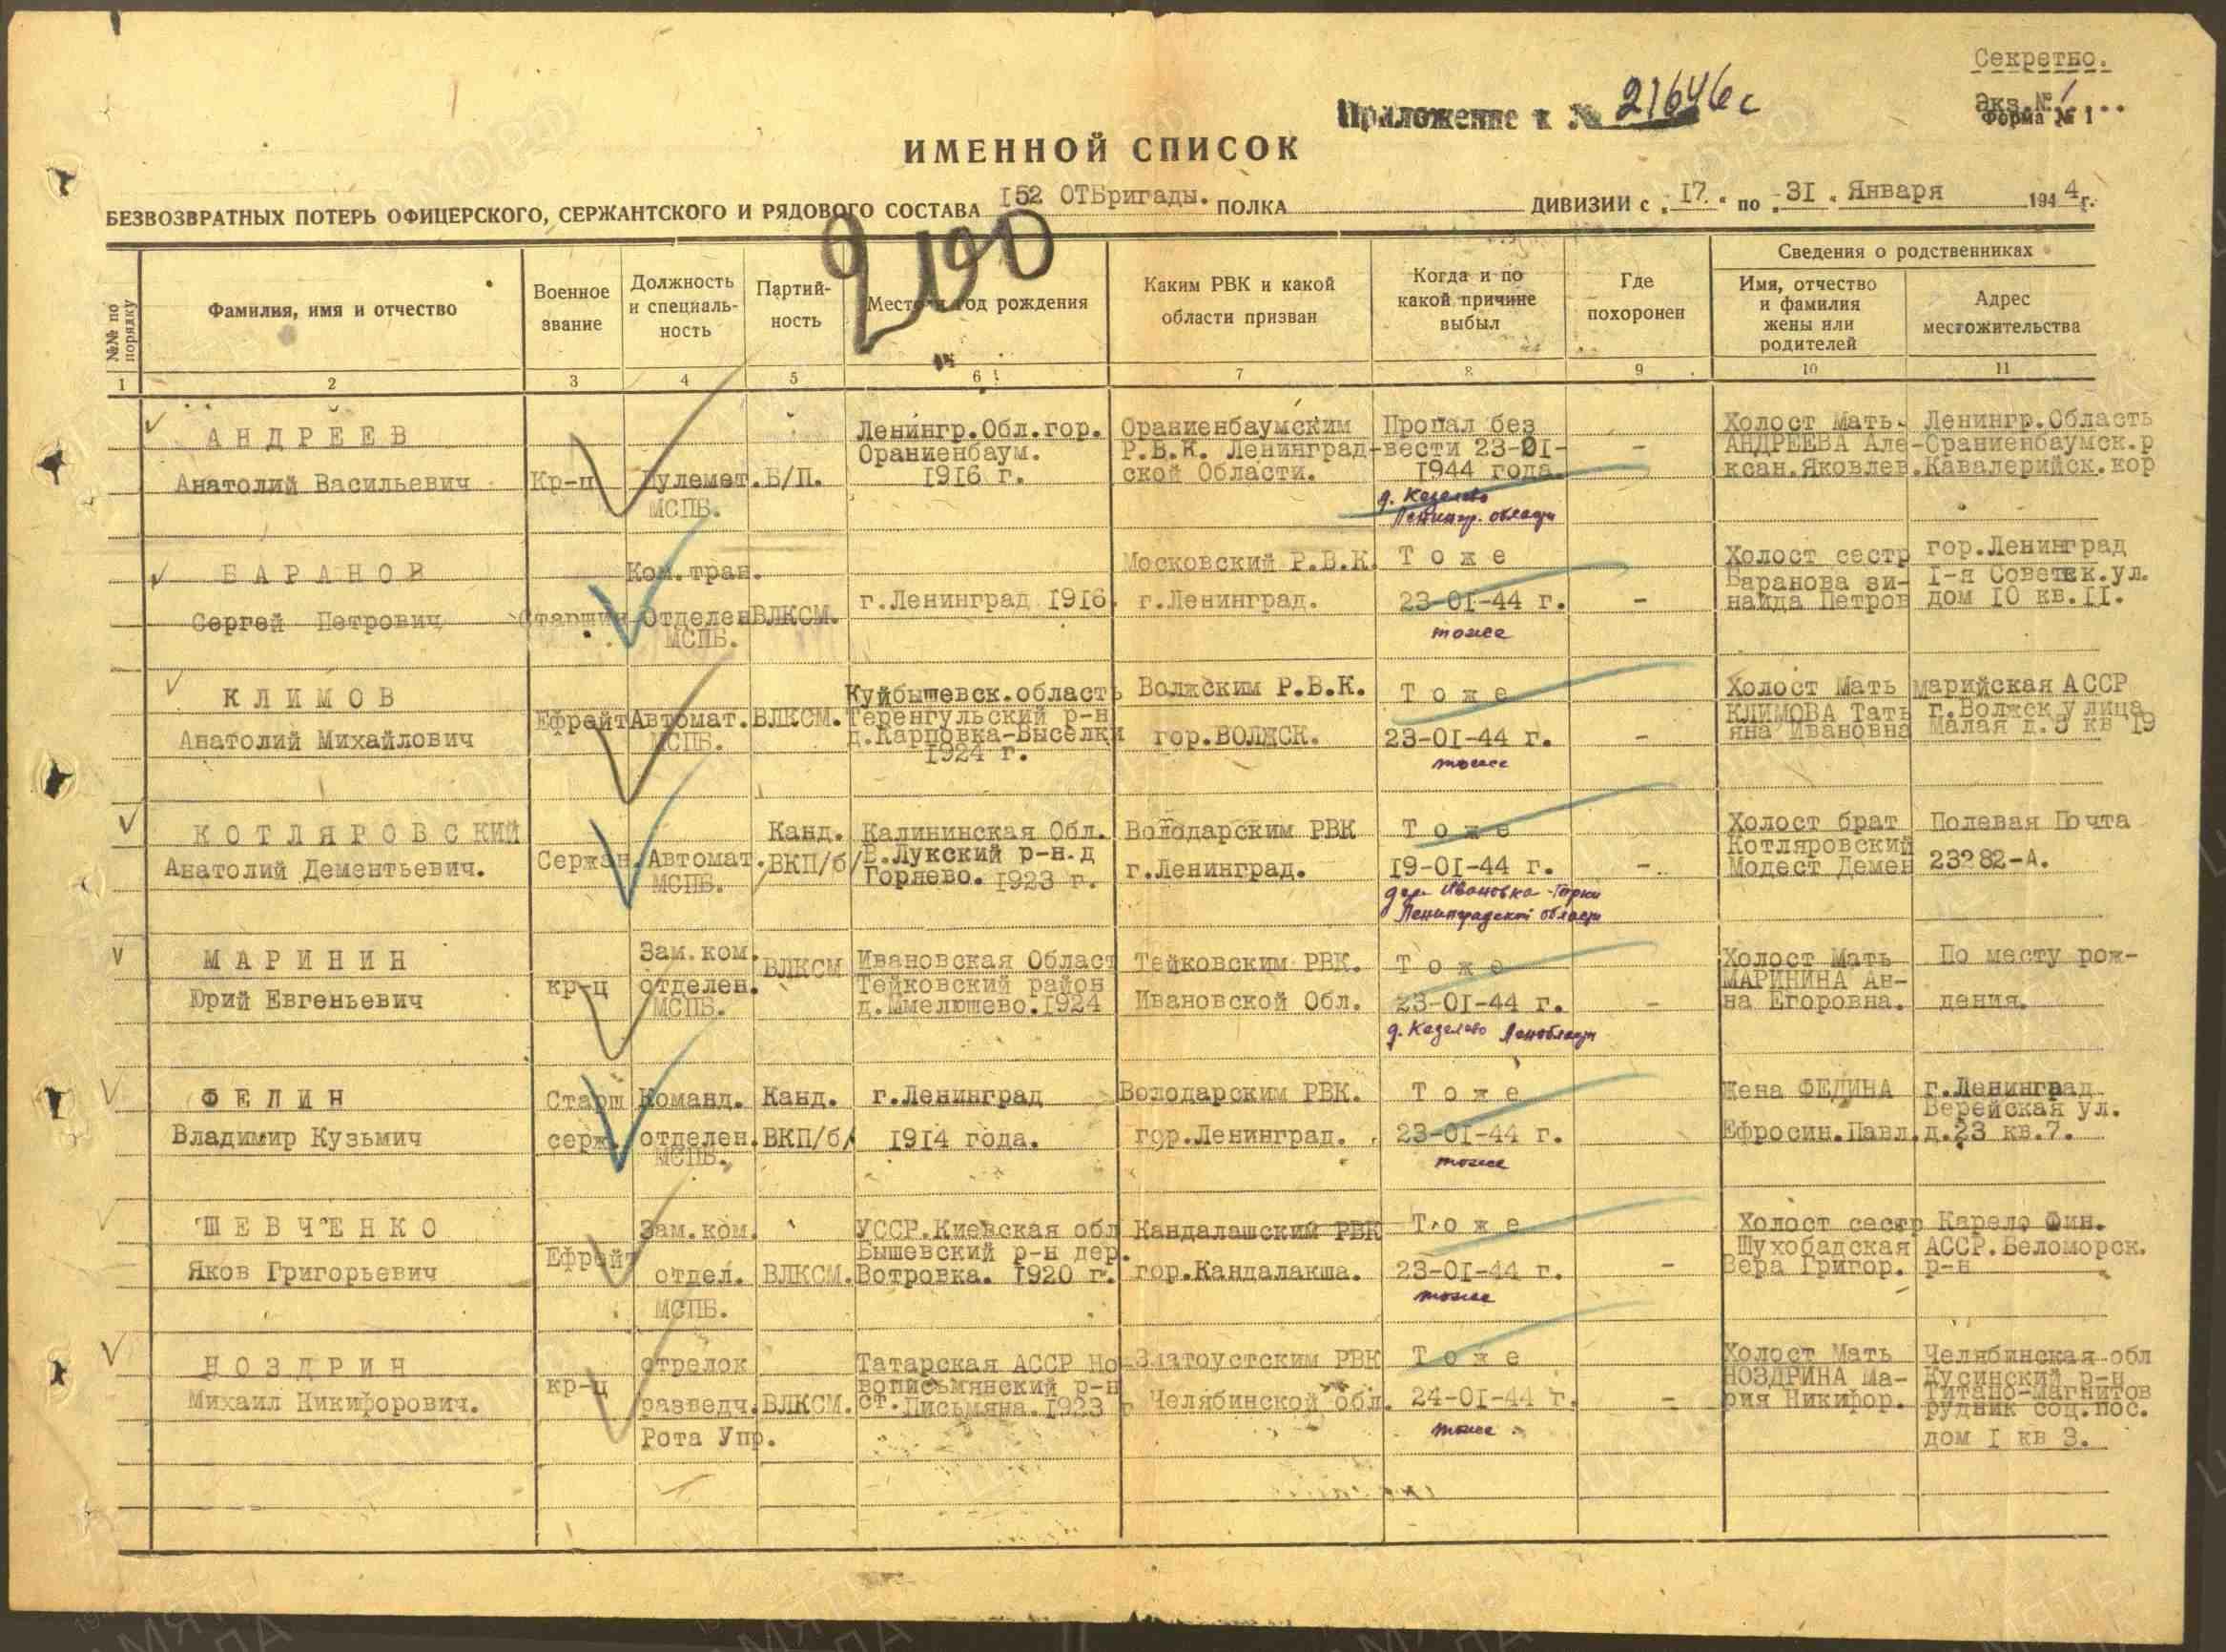 Секретно.
Приложение к № 21646с
Экз.№ 1
Форма № 1
ИМЕННОЙ СПИСОК
БЕЗВОЗВРАТНЫХ ПОТЕРЬ ОФИЦЕРСКОГО, СЕРЖАНТСКОГО И РЯДОВОГО СОСТАВА 152 ОТБригады. ПОЛКА ДИВИЗИИ с „17." по „31. Января 1944г.
2100
№№ по порядку
Фамилия, имя и отчество
Военное звание
Должность и специаль-
ность
Партий-
ность
Место и год рождения
Каким РВК и какой
области призван
Когда и по
какой причине
выбыл
Где
похоронен
Сведения о родственниках
Имя, отчество
и фамилия
жены или
родителей
Адрес
местожительства
1 2 3 4 5 6 7 8 9 10 11
АНДРЕЕВ
Анатолий Васильевич
Кр-ц
Пулемет.
МСПБ.
Б/П.
Ленингр.Обл.гор.
Ораниенбаум.
1916 г.
Ораниенбаумским
Р.В.К. Ленинград-
ской Области.
Пропал без
вести 23-01-
1944 года.
д. Кезелево
Ленингр. области
-
Холост Мать-
АНДРЕЕВА Але-
ксан.Яковлев.
Ленингр.Область
Ораниенбаумск.р
Кавалерийск.кор
БАРАНОВ
Сергей Петрович
Старшин
Ком.тран.
Отделен
МСПБ.
ВЛКСМ.
г.Ленинград 1916
Московский Р.В.К.
г.Ленинград.
Тоже
23-01-44 г.
тоже
-
Холост сестр
Баранова зи-
наида Петров
гор.Ленинград
I-я Советск.ул.
дом 10 кв.II.
КЛИМОВ
Анатолий Михайлович
Ефрейт
Автомат.
МСПБ.
ВЛКСМ.
Куйбышевск.область
Теренгульский р-н
д.Карповка-Выселки
1924 г.
Волжским Р.В.К.
гор.ВОЛЖСК.
Тоже
23-01-44 г.
тоже
-
Холост Мать
КЛИМОВА Тать
яна Ивановна
марийская АССР
г.Волжск улица
Малая д.3 кв 19
КОТЛЯРОВСКИЙ
Анатолий Дементьевич.
Сержан.
Автомат.
МСПБ.
Канд.
ВКП/б/
Калининская Обл.
В.Лукский р-н.д
Горнево. 1923 г.
Володарским РВК
г.Ленинград.
Тоже
19-01-44 г.
дер. Ивановка-Горки
Ленинградской области
-
Холост брат
Котляровский
Модест Демен
Полевая Почта
23282-А.
МАРИНИН
Юрий Евгеньевич
кр-ц
Зам.ком.
отделен.
МСПБ.
ВЛКСМ
Ивановская Област
Тейковский район
1924
Тейковским РВК.
Ивановской Обл.
Тоже
23-01-44 г.
д. Кезелево Ленобласти
-
Холост Мать
МАРИНИНА Ан-
на Егоровна.
По месту рож-
дения.
ФЕЛИН
Владимир Кузьмич
Старш
серж.
Команд.
отделен.
МСПБ.
Канд.
ВКП/б/
г.Ленинград
1914 года.
Володарским РВК.
гор.Ленинград.
Тоже
23-01-44 г.
тоже
жена ФЕДИНА
Ефросин.Павл.
г.Ленинград
Верейская ул.
д.23 кв.7.
ШЕВЧЕНКО
Яков Григорьевич
Ефрейт
Зам.ком.
отдел.
МСПБ.
ВЛКСМ.
УССР.Киевская обл
Бышевский р-н дер.
Вотровка. 1920 г.
Кандалашский РВК
гор.Кандалакша.
Тоже
23-01-44 г.
тоже
-
Холост сестр
Шухобадская
Вера Григор.
Карело Фин.
АССР.Беломорск.
р-н
НОЗДРИН
Михаил Никифорович.
кр-ц
стрелок
разведч.
Рота Упр.
ВЛКСМ.
Татарская АССР Но-
вописьмянский р-н
ст.Письмяна.1923 г
Златоустским РВК
Челябинской обл.
Тоже
24-01-44 г.
тоже
-
Холост Мать
НОЗДРИНА Ма-
рия Никифор.
Челябинская обл
Кусинский р-н
Титано-магнитов
рудник соц.пос.
дом I кв 3.